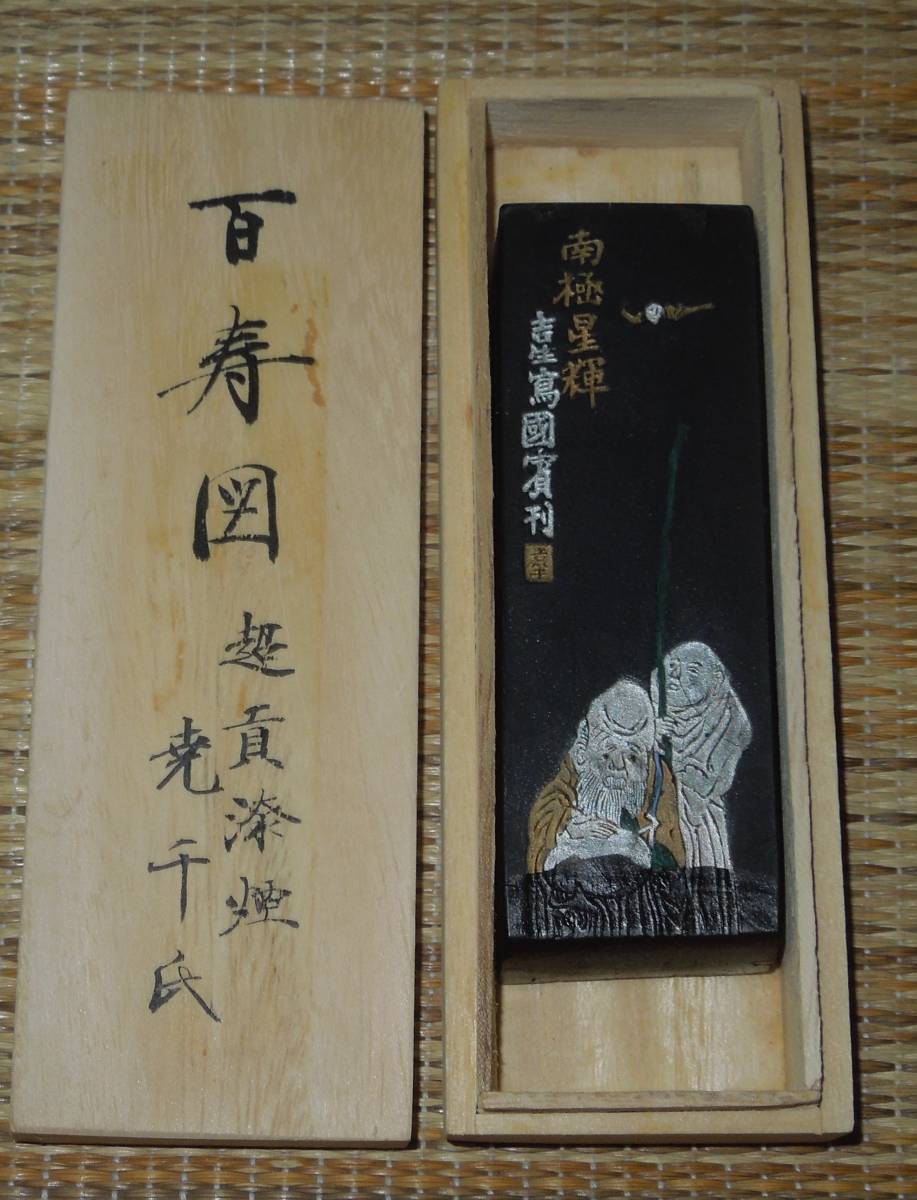 百寿図
超貢漆煙
堯千氏
南極星輝
吉生寫國賓刊
吉生